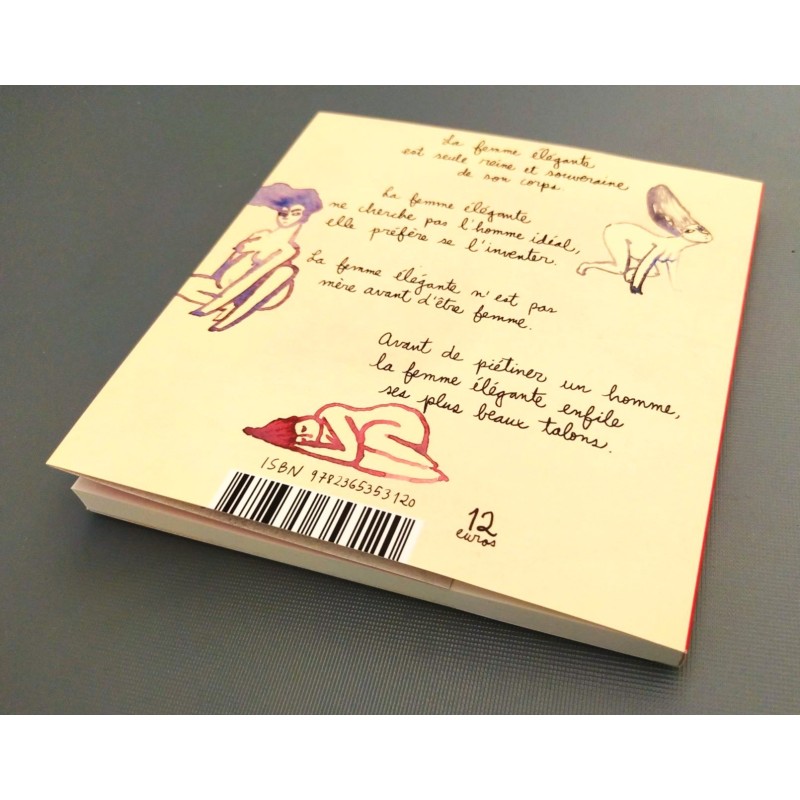 La femme élégante
est seule reine et souveraine
de son corps.
La femme élégante
ne cherche pas l'homme idéal,
elle préfère se l'inventer.
La femme élégante n'est pas
mère avant d'être femme.
Avant de piétiner un homme,
la femme élégante enfile
ses plus beaux talons.
ISBN 9782365353120
12
euros